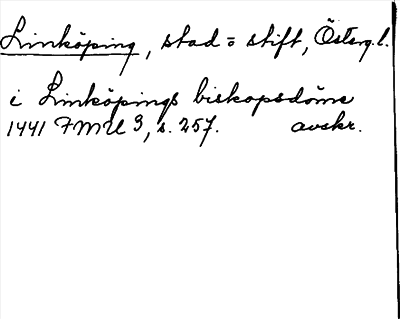 Linköping, stad o stift, Österg. l.
i Linköpings biskopsdöme
1441 FMU 3, s. 257. avskr.